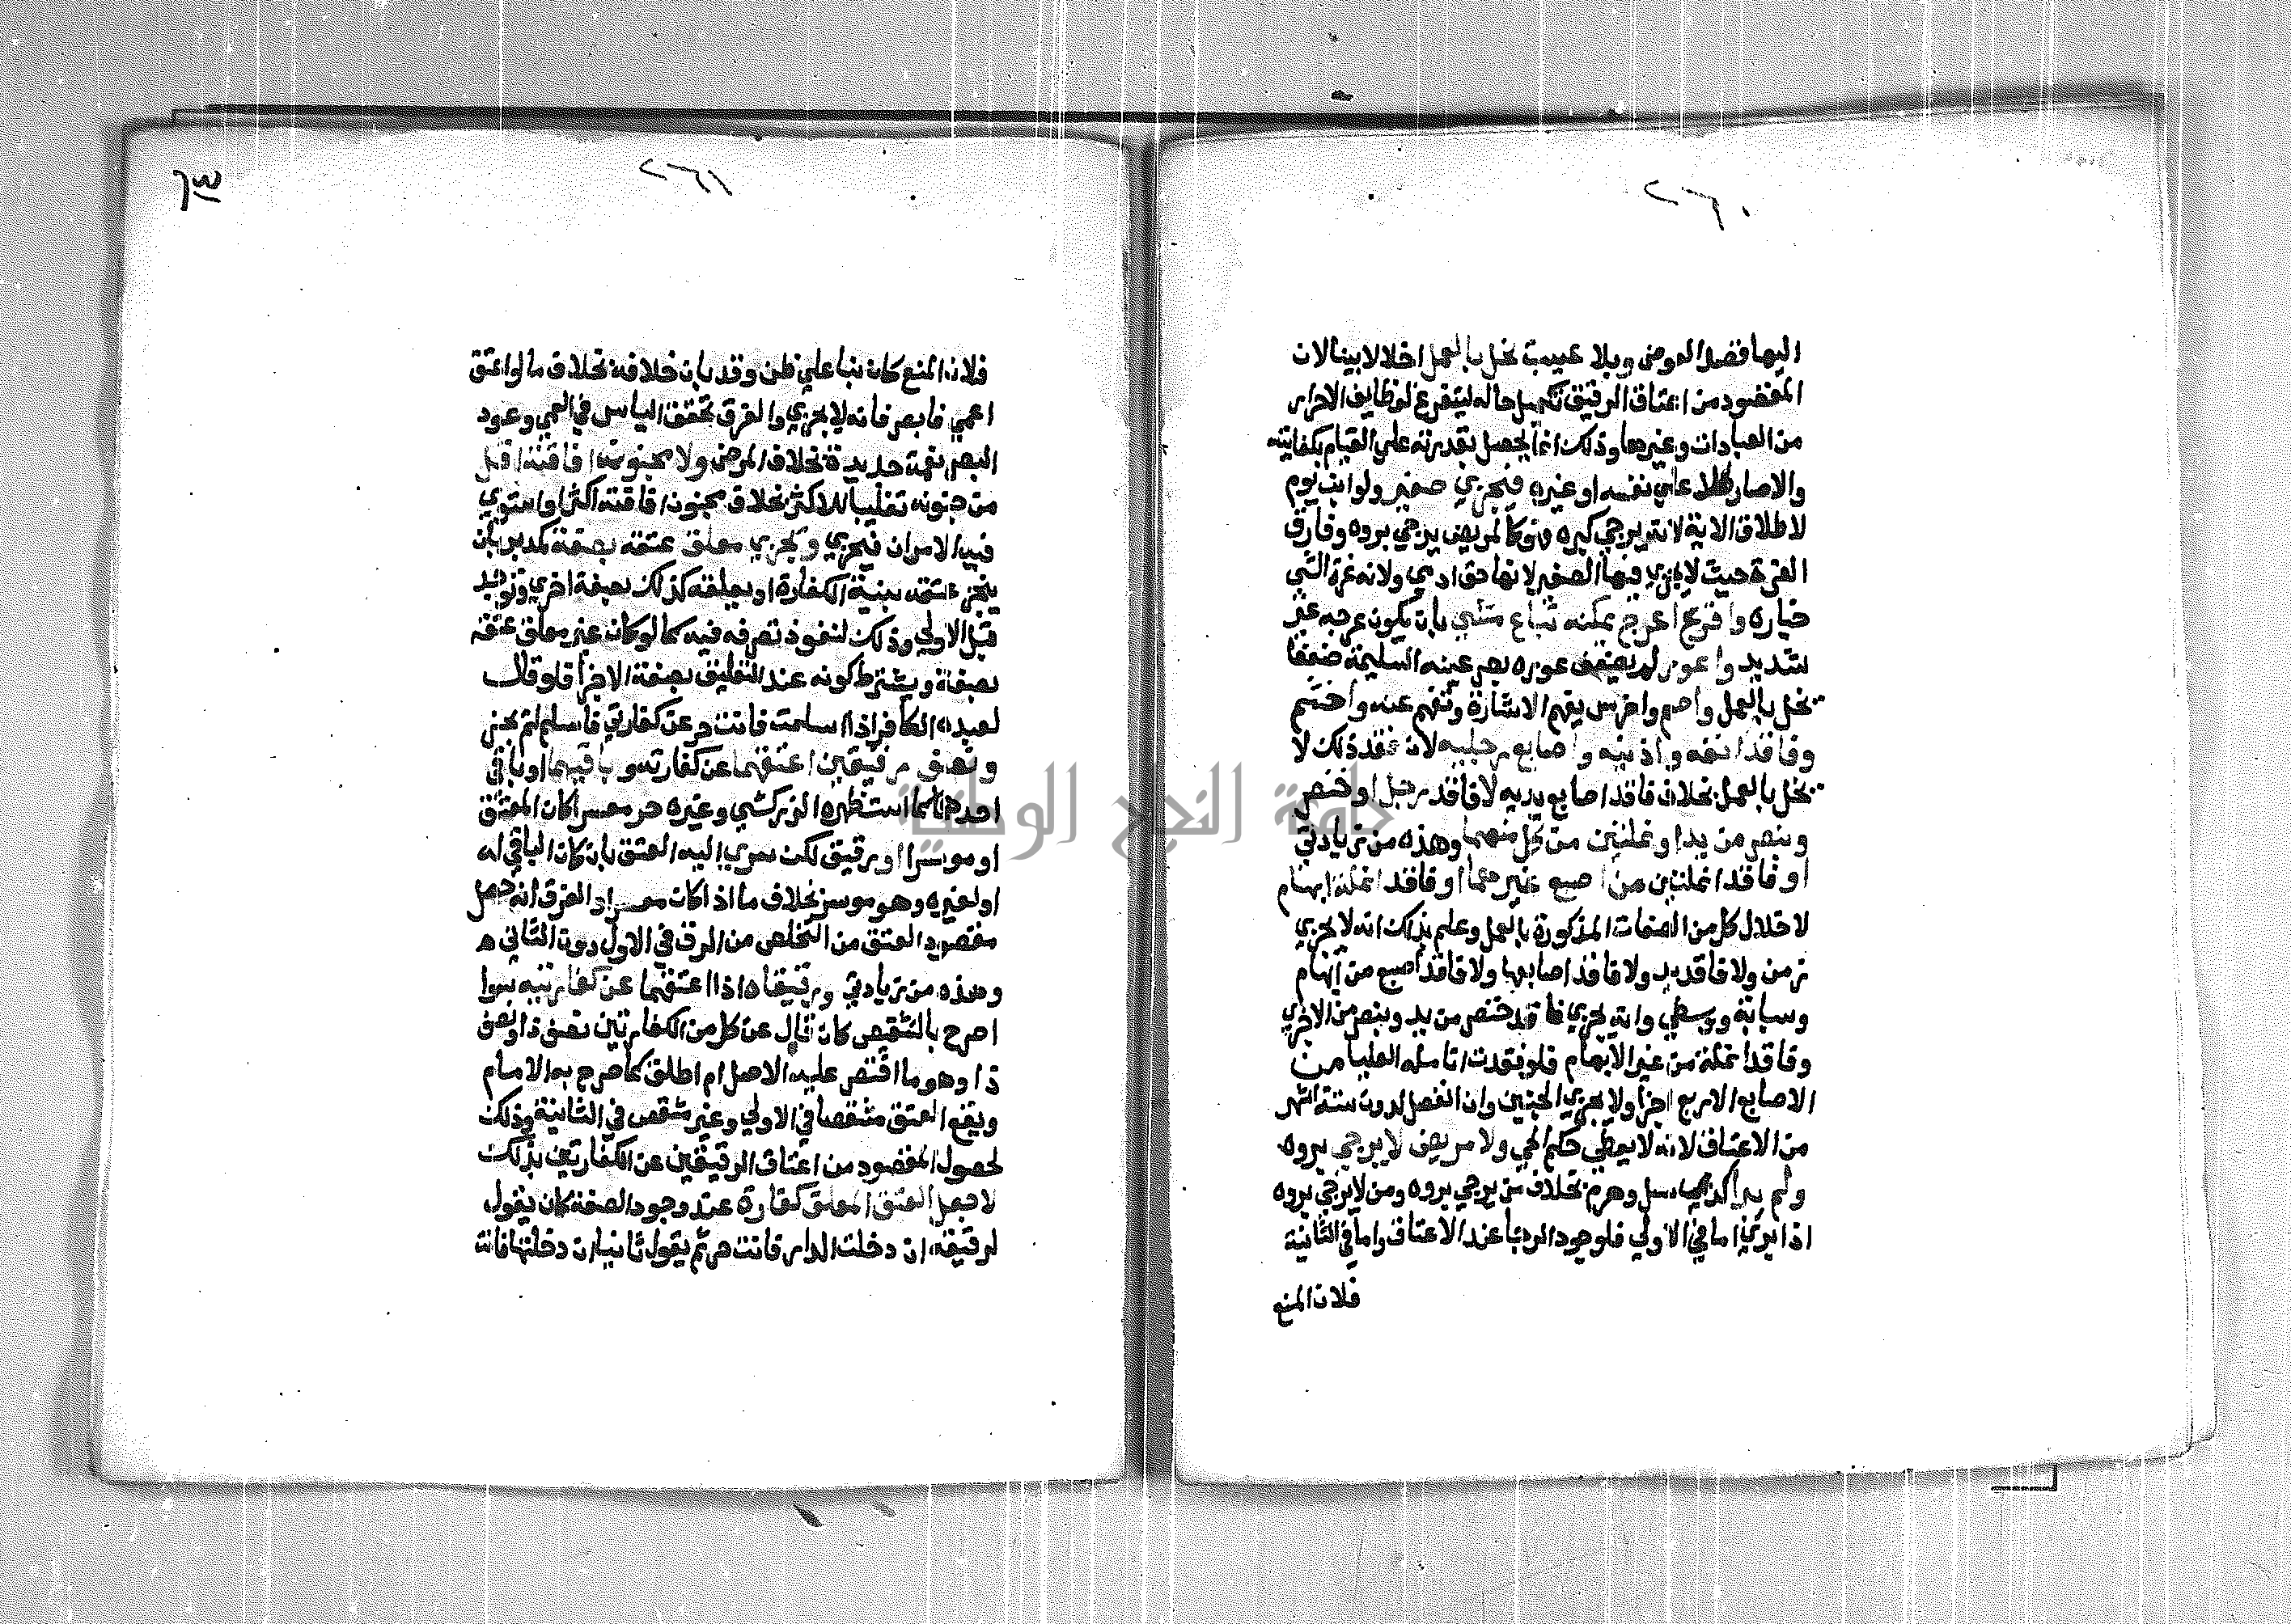 ٢٦٠
اليها فضل العوض وبلا عيب يخل بالعمل اخلالا بينا لان
المقصود من اعتاق الرقيق تكميل حاله ليتفرغ لوظايف الاحرار
من العبادات وغيرها وذلك انما يحصل بقدرته علي القيام بكفايته
والا صار كلا علي نفسه او غيره فيجزي صغير ولو ابن يوم
لاطلاق الاية لانه يرجي كبره فهو كالمريض يرجي بروه وفارق
الغرة حيث لا يجزي فيها الصغير لانها حق ادمي ولانه غرة التي
خياره واقرع اعرج يمكنه تباع مشي بان يكون عرجه غير
شديد واعور لم يضعف عوره بصر عينه السليمة ضعفا
يخل بالعمل واصم واخرس يفهم الاشارة وتفهم عنه واخشم
وفاقد انفه واذنيه واصابع رجليه لان فقد ذلك لا
يخل بالعمل بخلاف فاقد اصابع يديه لا فاقد رجل او خنصر
وبنصر من يد او نملتين من كل منهما وهذه من زيادتي
او فاقد انملتين من اصبع غيرهما او فاقد انملة ابهام
لاخلال كل من الصفات المذكورة بالعمل وعلم بذلك انه لا يجزي
زمن ولا فاقد يد ولا فاقد اصابعها ولا فاقد اصبع من ابهام
وسبابة ووسطي وانه يجزي فاقد خنصر من يد وبنصر من الاخري
وفاقد انملة من غير الابهام فلو فقدت انامله العليا من
الاصابع الاربع اجزا ولا يجزي الجنين وان انفصل لدون ستة اشهر
من الاعتاق لانه لا يعطي حكم الحي ولا مريض لا يرجي بروه
ولم يبرا كذي سل وهرم بخلاف من يرجي بروه ومن لا يرجي بروه
اذا بري اما في الاولي فلوجود الرجا عند الاعتاق واما في الثانية
فلان المنع
٢٦١
٦٣
فلان المنع كان بنا علي ظن وقد بان خلافه بخلاف ما لو اعتق
اعمي فابصر فانه لا يجزي والفرق تحقق الياس في العمي وعود
البصر نعمة جديدة بخلاف المرض ولا مجنون افاقته اقل
من جنونه تغليبا للاكثر بخلاف مجنون افاقته اكثر او استوي
فيه الامران فيجزي ويجزي معلق عتقه بصفة كمدبر بان
ينجز عتقه بنية الكفارة او يعلقه كذلك بصفة اخري وتوجد
قبل الاولي وذلك لنفوذ تصرفه فيه كما لو كان غير معلق عتقه
بصفة ويشترط كونه عند التعليق بصفة الاجزا فلو قال
لعبده الكافر اذا اسلمت فانت حر عن كفارتي فاسلم لم يجز
ونصفا رقيقين اعتقهما عن كفارته وباقيهما او باقي
احدهما كما استظهره الزركشي وغيره حر معسرا كان المعتق
او موسرا او رقيق لكن سري اليه العتق بان كان الباقي له
او لغيره وهو موسر بخلاف ما اذا كان معسرا والفرق انه حصل
مقصود العتق من التخلص من الرق في الاول دون الثاني
وهذه من زيادتي ورقيقاه اذا اعتقهما عن كفارتيه سوا
اصرح بالتشقيص كان قال عن كل من الكفارتين نصف ذا ونصف
ذا وهو ما اقتصر عليه الاصل ام اطلق كما صرح به الامام
ويقع العتق مشقصا في الاولي وغير مشقص في الثانية وذلك
لحصول المقصود من اعتاق الرقيقين عن الكفارتين بذلك
لا جعل العتق المعلق كفارة عند وجود الصفة كان يقول
لرقيقه ان دخلت الدار فانت حر ثم يقول ثانيا ان دخلتها فانت
جامعة النجاح الوطنية